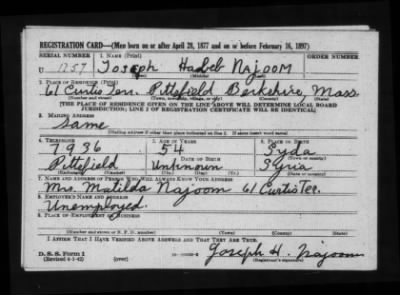 REGISTRATION CARD—(Men born on or after April 28, 1877 and on or before February 16, 1897)
SERIAL NUMBER 1. NAME (Print)
U 1757 Joseph Habeb Najoom
(First) (Middle) (Last)
2. PLACE OF RESIDENCE (Print)
61 Curtis Terr. Pittsfield Berkshire, Mass
(Number and street) (Town, township, village, or city) (County) (State)
[THE PLACE OF RESIDENCE GIVEN ON THE LINE ABOVE WILL DETERMINE LOCAL BOARD
JURISDICTION; LINE 2 OF REGISTRATION CERTIFICATE WILL BE IDENTICAL]
3. MAILING ADDRESS
Same
[Mailing address if other than place indicated on line 2. If same insert word same]
4. TELEPHONE 5. AGE IN YEARS 6. PLACE OF BIRTH
7936 54 Syda
DATE OF BIRTH (Town or county)
Pittsfield Unknown Syria
(Exchange) (Number) (Mo.) (Day) (Yr.) (State or country)
7. NAME AND ADDRESS OF PERSON WHO WILL ALWAYS KNOW YOUR ADDRESS
Mrs. Matilda Najoom 61 Curtis Ter.
8. EMPLOYER'S NAME AND ADDRESS
Unemployed.
9. PLACE OF EMPLOYMENT OR BUSINESS
(Number and street or R. F. D. number) (Town) (County) (State)
I AFFIRM THAT I HAVE VERIFIED ABOVE ANSWERS AND THAT THEY ARE TRUE.
D. S. S. Form 1
(Revised 4-1-42) (over) Joseph H. Najoom
(Registrant's signature)